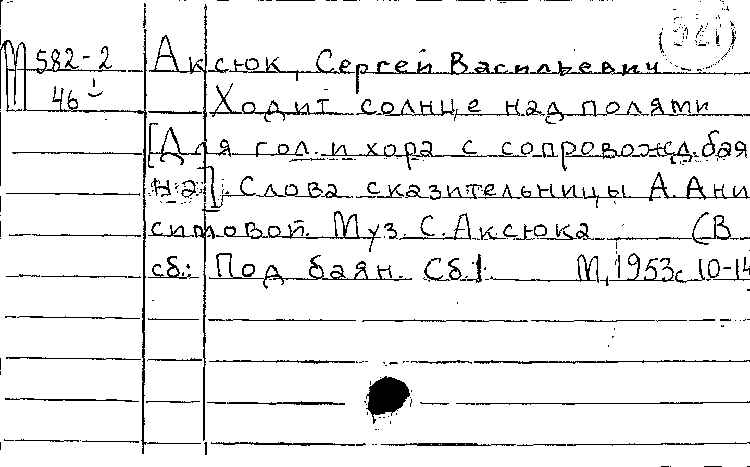 521
М 582-2 Аксюк, Сергей Васильевич
46 Ходит солнце над полями
[Для гол. и хора с сопровожд. бая
на]. Слова сказительницы А. Ани
симовой. Муз. С. Аксюка (В
сб.: Под баян. Сб. 1. М, 1953 с 10-14